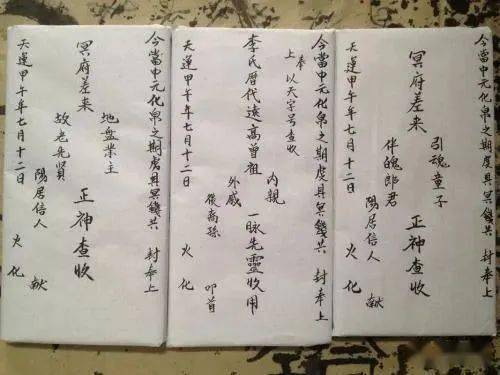 今當中元化帛之期虔具冥錢共 封奉上
引魂童子
冥府差来 正神查收
伴魄郎君
陽居信人 献
天運甲午年七月十二日 火化
今當中元化帛之期虔具冥錢共 封奉上
上奉 以天字号查收
内親
李氏暦代遠高曾祖 一脉先靈收用
外戚
後裔孫 叩首
天運甲午年七月十二日 火化
今當中元化帛之期虔具冥錢共 封奉上
地盤業主
冥府差来 正神查收
故老先賢
陽居信人 献
天運甲午年七月十二日 火化